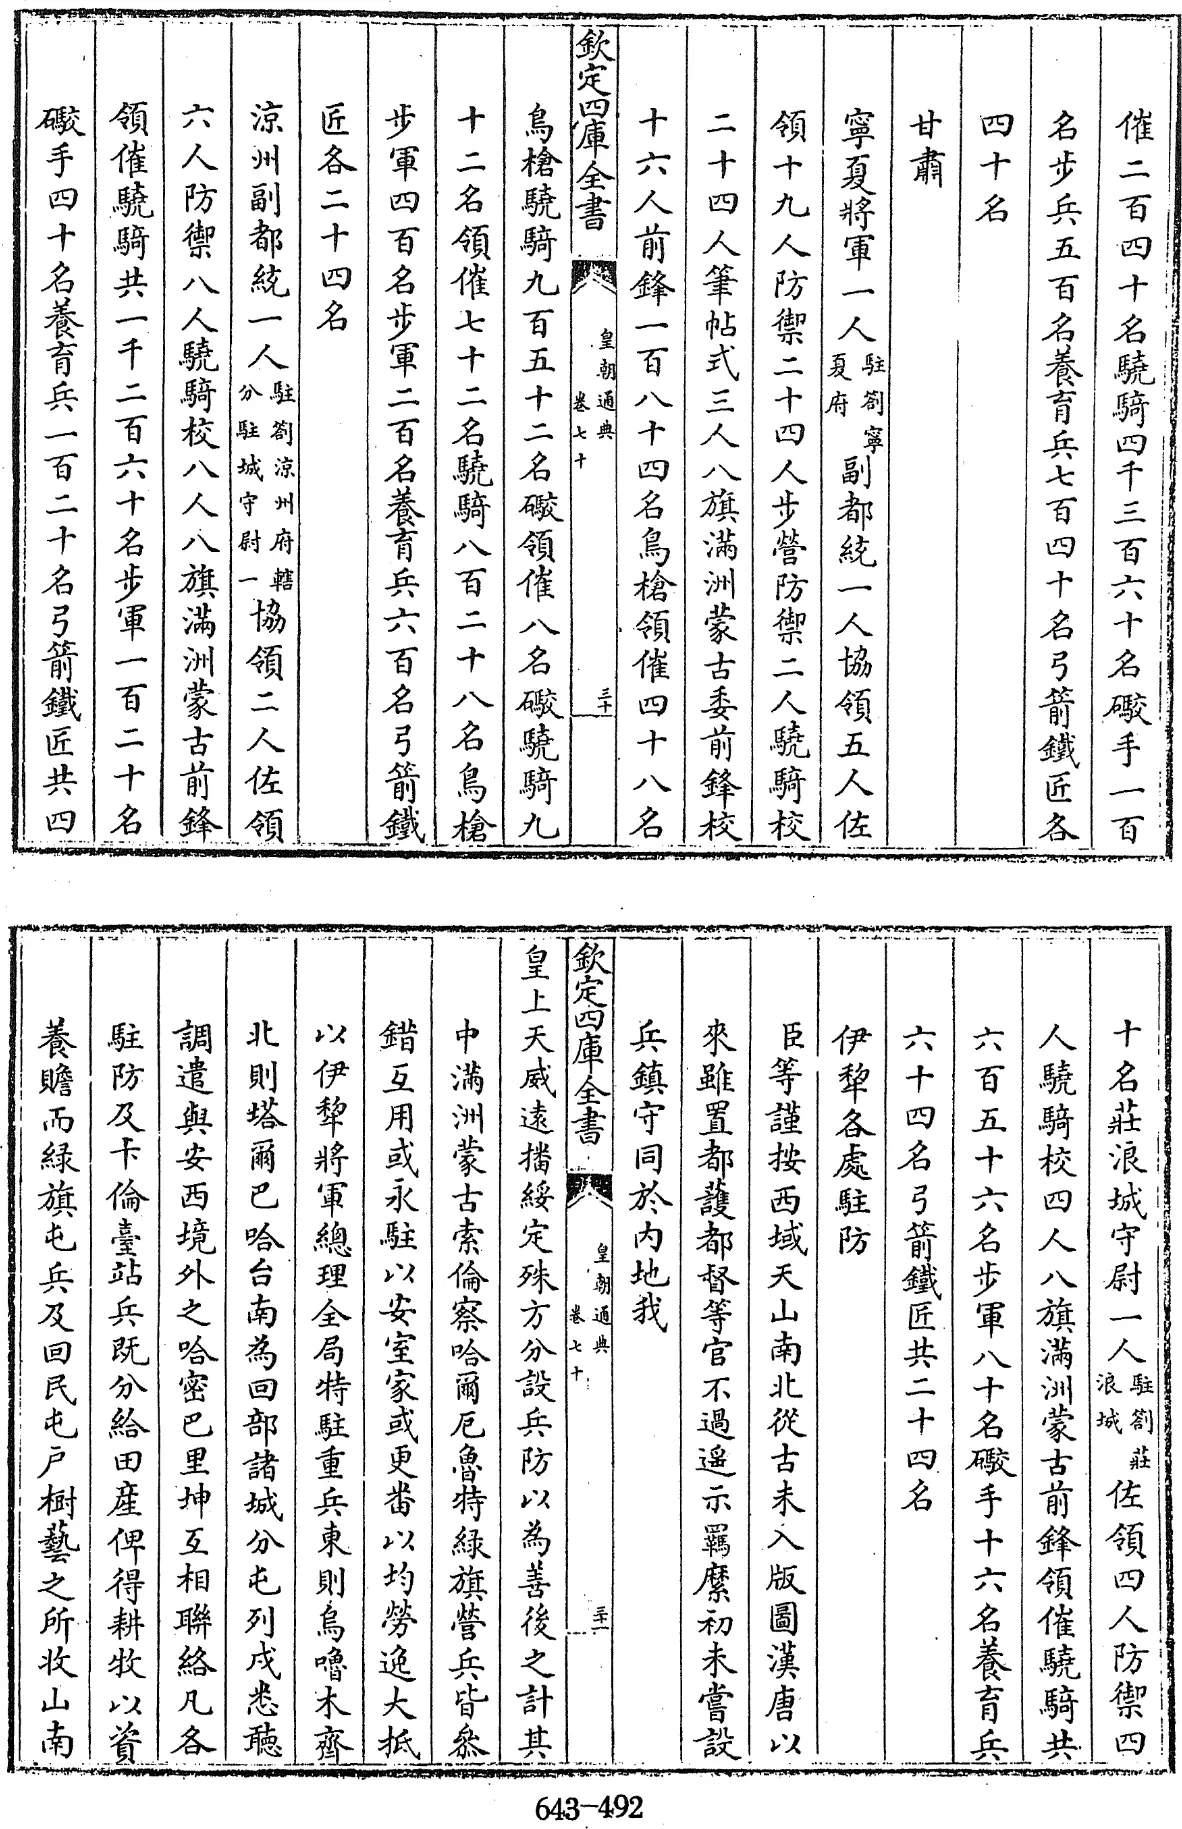 催二百四十名驍騎四千三百六十名礮手一百
名步兵五百名養育兵七百四十名弓箭鐵匠各
四十名
甘肅
寧夏將軍一人駐劄寧夏府副都統一人協領五人佐
領十九人防禦二十四人步營防禦二人驍騎校
二十四人筆帖式三人八旗滿洲蒙古委前鋒校
十六人前鋒一百八十四名鳥槍領催四十八名
欽定四庫全書
皇朝通典
卷七十
三十
鳥槍驍騎九百五十二名礮領催八名礮驍騎九
十二名領催七十二名驍騎八百二十八名鳥槍
步軍四百名步軍二百名養育兵六百名弓箭鐵
匠各二十四名
涼州副都統一人駐劄涼州府轄分駐城守尉一協領二人佐領
六人防禦八人驍騎校八人八旗滿洲蒙古前鋒
領催驍騎共一千二百六十名步軍一百二十名
礮手四十名養育兵一百二十名弓箭鐵匠共四
十名莊浪城守尉一人駐劄莊浪城佐領四人防禦四
人驍騎校四人八旗滿洲蒙古前鋒領催驍騎共
六百五十六名步軍八十名礮手十六名養育兵
六十四名弓箭鐵匠共二十四名
伊犂各處駐防
臣等謹按西域天山南北從古未入版圖漢唐以
來雖置都護都督等官不過遥示羈縻初未嘗設
兵鎮守同於内地我
欽定四庫全書
皇朝通典
卷七十
三十一
皇上天威遠播綏定殊方分設兵防以為善後之計其
中滿洲蒙古索倫察哈爾厄魯特緑旗營兵皆叅
錯互用或永駐以安室家或更畨以均勞逸大抵
以伊犂將軍總理全局特駐重兵東則烏嚕木齊
北則塔爾巴哈台南為回部諸城分屯列戍悉聽
調遣與安西境外之哈密巴里坤互相聯絡凡各
駐防及卡倫臺站兵既分給田産俾得耕牧以資
養贍而緑旗屯兵及回民屯户樹藝之所收山南
643-492